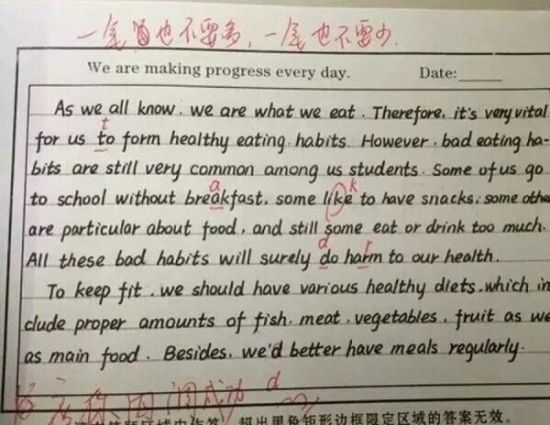 一笔也不要多，一笔也不要少.
We are making progress every day. Date:
As we all know, we are what we eat. Therefore, it's very vital
t
for us to form healthy eating habits. However, bad eating ha-
bits are still very common among us students. Some of us go
a k
to school without breakfast, some like to have snacks, some othe
are particular about food, and still some eat or drink too much.
d r
All these bad habits will surely do harm to our health.
To keep fit, we should have various healthy diets, which in
clude proper amounts of fish, meat, vegetables, fruit as we
as main food. Besides, we'd better have meals regularly.
成功 d
区域内作答，超出黑色矩形边框限定区域的答案无效。